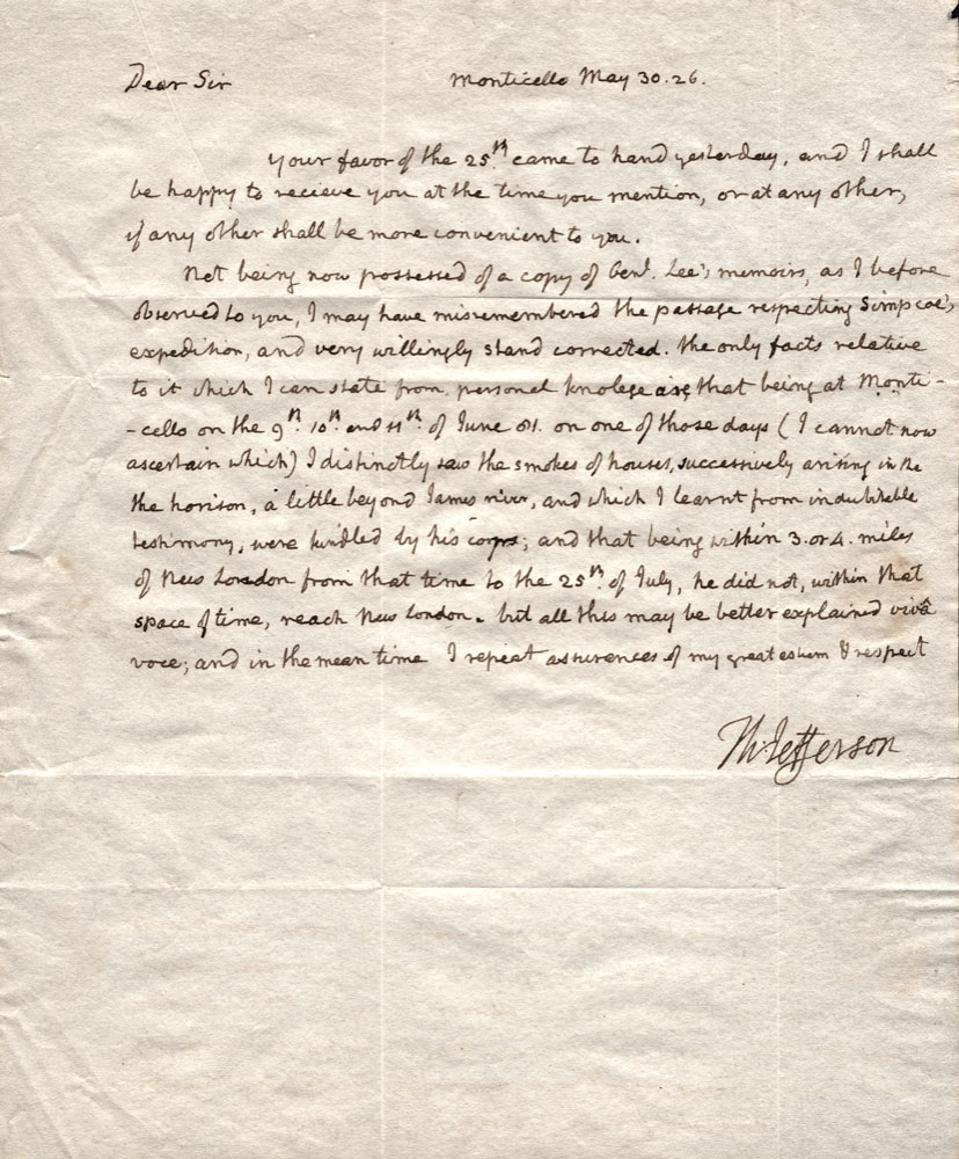 Dear Sir Monticello May 30. 26.
your favor of the 25th. came to hand yesterday, and I shall
be happy to recieve you at the time you mention, or at any other,
if any other shall be more convenient to you.
Not being now possessed of a copy of Genl. Lee's memoirs, as I before
observed to you, I may have misremembered the passage respecting Simpcoe's
expedition, and very willingly stand corrected. the only facts relative
to it which I can state from personal knolege are that being at Monti-
-cello on the 9th. 10th. and 11th. of June 81. on one of those days (I cannot now
ascertain which) I distinctly saw the smokes of houses, successively arising in the
the horison, a little beyond James river, and which I learnt from indubitable
testimony, were kindled by his corps; and that being within 3. or 4. miles
of New London from that time to the 25th. of July, he did not, within that
space of time, reach New London. but all this may be better explained vivâ
voce; and in the mean time I repeat assurances of my great esteem & respect
Th: Jefferson